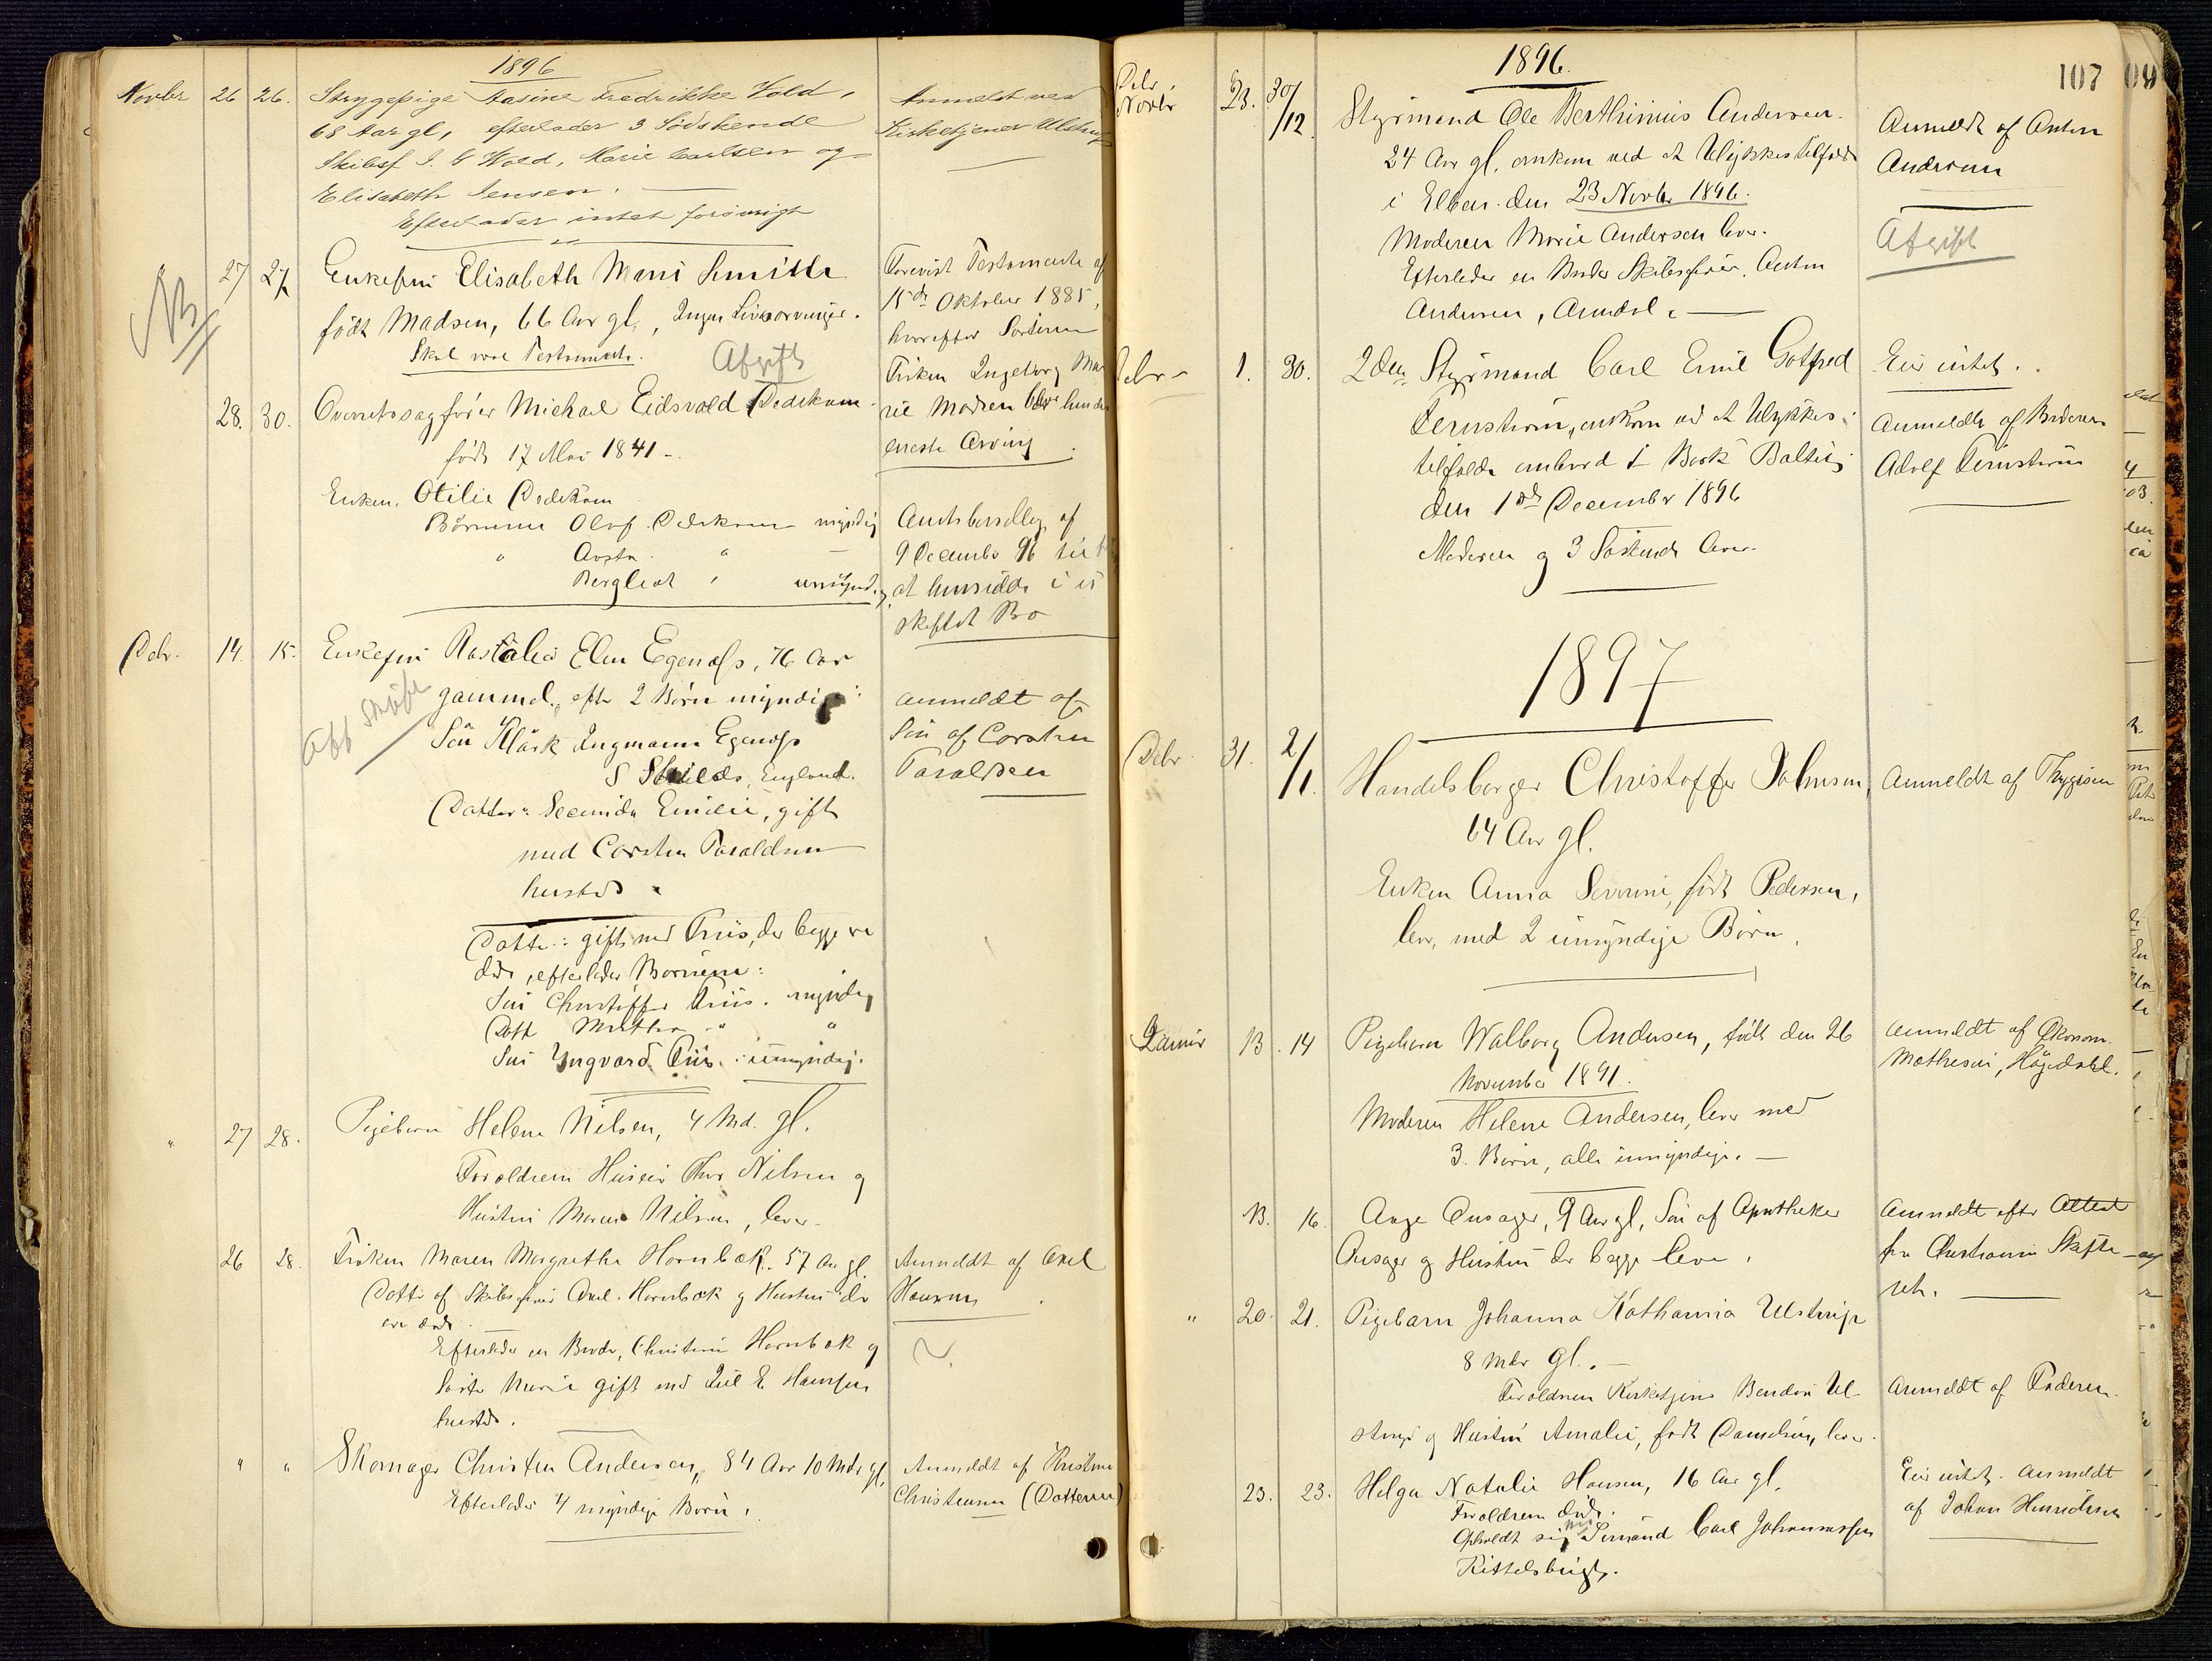 1896
Novbr 26 26. Strygepige Aasine Fredrikke Vold,
68 Aar gl, efterlader 3 Södskende
Skibsf. I. G Wold, Marie Carlsen og
Elisabeth Jensen.
Efterlader intet forövrigt
Anmeldt ved
Kirketjener Ulstrup
NB
27 27/ Enkefru Elisabeth Marie Smith
födt Madsen, 66 Aar gl., Ingen Livsarvinger.
Skal være Testamente.
Afgift
Forevist Testamente af
15de Oktober 1885,
hvorefter Søsteren
Frøken Ingeborg Ma-
rie Madsen blev hendes
eneste Arving
28. 30. Overretssagfører Michael Eidsvold Dedekam
født 17 Mai 1841 -
Enken, Otilie Dedekam
Børnene Olaf Dedekam myndig
" Aasta " -
Bergliot " umyndig
Amtsbevillg. af
9 December 96 til
at hensidde i u-
skiftet Bo
Debr. 14. 15. Enkefru Rosalie Elen Egenæss, 76 Aar
gammel, eftr 2 Børn myndige:
Sön Klärk Ingmann Egenæss
S Shields, England.
Datter: Secunda Emilie, gift
med Corsten Taraldsen
hersteds
Aff skifte
anmeldt af
Sön af Corsten
Taraldsen
Datter: gift med Friis, der begge er
døde, efterlader Børnene:
Søn Christoffer Friis. myndig
Datt Martha " "
Søn Yngvard Friis. umyndig.
" 27 28. Pigebarn Helene Nilsen, 4 Md. gl.
Forældrene Huseier Thor Nilsen og
Hustru Maren Nilsen, lever.
26 28. Frøken Maren Margrethe Hornbæk. 57 Aar gl.
Datter af Skibsfører Axel Hornbæk og Hustru der
ere døde.
Efterlader en Broder, Christian Hornbæk og
Søster Maria gift med E. Hansen
hersteds.
Anmeldt af Axel
Hansen
" " Skomager Christen Andersen, 84 Aar 10 Mdr gl,
Efterlader 4 myndige Børn.
Anmeldt af Kristine
Christensen (Datteren)
1896.
107
Debr
Novbr 23. 30/12. Styrmand Ole Berthinius Andersen.
24 Aar gl. omkom ved et Ulykkestilfælde
i Elben den 23 Novbr 1896.
Moderen Marie Andersen lever.
Efterlader en Broder Skibsfører, Anton
Andersen, Arendal.
Anmeldt af Anton
Andersen
Afgift
Debr 1. 30. 2den Styrmand Carl Emil Gotfred
Fernström, omkom ved et Ulykkes-
tilfælde ombord i Bark Baltic
den 1ste December 1896
Moderen og 3 Søskende lever.
Eier intet.
Anmeldt af Broderen
Adolf Fernström
1897
Debr 31. 2/1. Handelsborger Christoffer Johnsen,
64 Aar gl.
Enken Anna Severine, født Pedersen,
lever, med 2 umyndige Børn.
Anmeldt af Thygesen
Januar 13. 14 Pigebarn Walborg Andersen, født den 26
November 1891.
Moderen Helene Andersen, lever med
3. Børn, alle umyndige.
anmeldt af Økonom.
Mathesen, Høgedahl.
13. 16. Aage Ousager, 9 Aar gl, Søn af Apotheker
Ousager og Hustru der begge lever.
Anmeldt efter Attest
fra Christiania Skifte-
ret.
" 20. 21. Pigebarn Johanna Kathania Ulstrup
8 Mdr gl.
Forældrene Kirketjener Bendix Ul-
strup og Hustru Amalie, født Danielsen, lever.
Anmeldt af Faderen.
23. 23. Helga Natalie Hansen, 16 Aar gl.
Forældrene døde.
Opholdt sig hos Sømand Carl Johannessen
Kittelsbugt.
Eier intet. Anmeldt
af Johan Henriksen